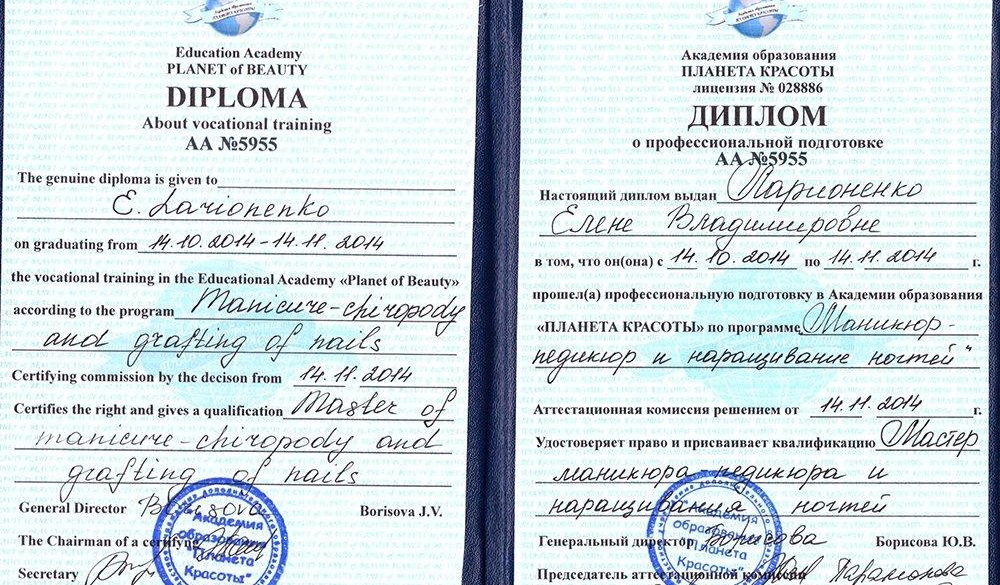 Education Academy
PLANET of BEAUTY
DIPLOMA
About vocational training
АА №5955
The genuine diploma is given to
E. Larionenko
on graduating from 14.10.2014-14.11.2014
the vocational training in the Educational Academy «Planet of Beauty»
according to the program Manicure-chiropody
and grafting of nails
Certifying commission by the decison from 14.11.2014
Certifies the right and gives a qualification Master of
manicure-chiropody and
grafting of nails
General Director Borisova J.V.
The Chairman of a certifyng
Secretary
Академия
образования
"Планета
Красоты"
Академия образования
ПЛАНЕТА КРАСОТЫ
лицензия № 028886
ДИПЛОМ
о профессиональной подготовке
АА №5955
Настоящий диплом выдан Ларионенко
Елене Владимировне
в том, что он(она) с 14.10.2014 по 14.11.2014 г.
прошел(а) профессиональную подготовку в Академии образования
«ПЛАНЕТА КРАСОТЫ» по программе "Маникюр-
педикюр и наращивание ногтей"
Аттестационная комиссия решением от 14.11.2014 г.
Удостоверяет право и присваивает квалификацию Мастер
маникюра-педикюра и
наращивания ногтей
Генеральный директор Борисова Борисова Ю.В.
Председатель аттестационной комиссии
Академия
образования
"Планета
Красоты"